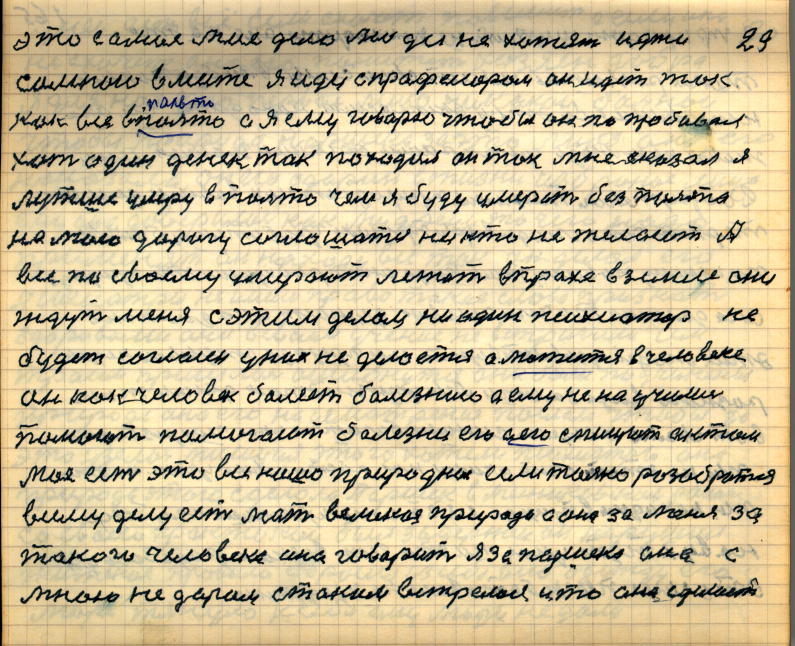 это самое мие дело люди не хотят идти 29
сомною вмите я иду спрафесором он идет так
как все впалто пальто а я ему говорю чтобы он по пробывал
хот один денек так походил он так мне сказал я
лутше умру в палто чем я буду умерат без палта
на маю дорогу соглошати никто не желает А
все по своему умирают лежат впрахе в земле они
ждут меня с этим делом ни один психиатор не
будет согласен у них не делается а мотится в человеке
он как человек болеет болезнию а ему не научили
помогат помогают болезни его а его спишут актом
моя ест это все нашо природнае если толко розобратся
всему делу ест мат великоя природа а она за меня за
такого человека она говорит я за паршека она с
мною не даром стаким встрелася и што она сделает